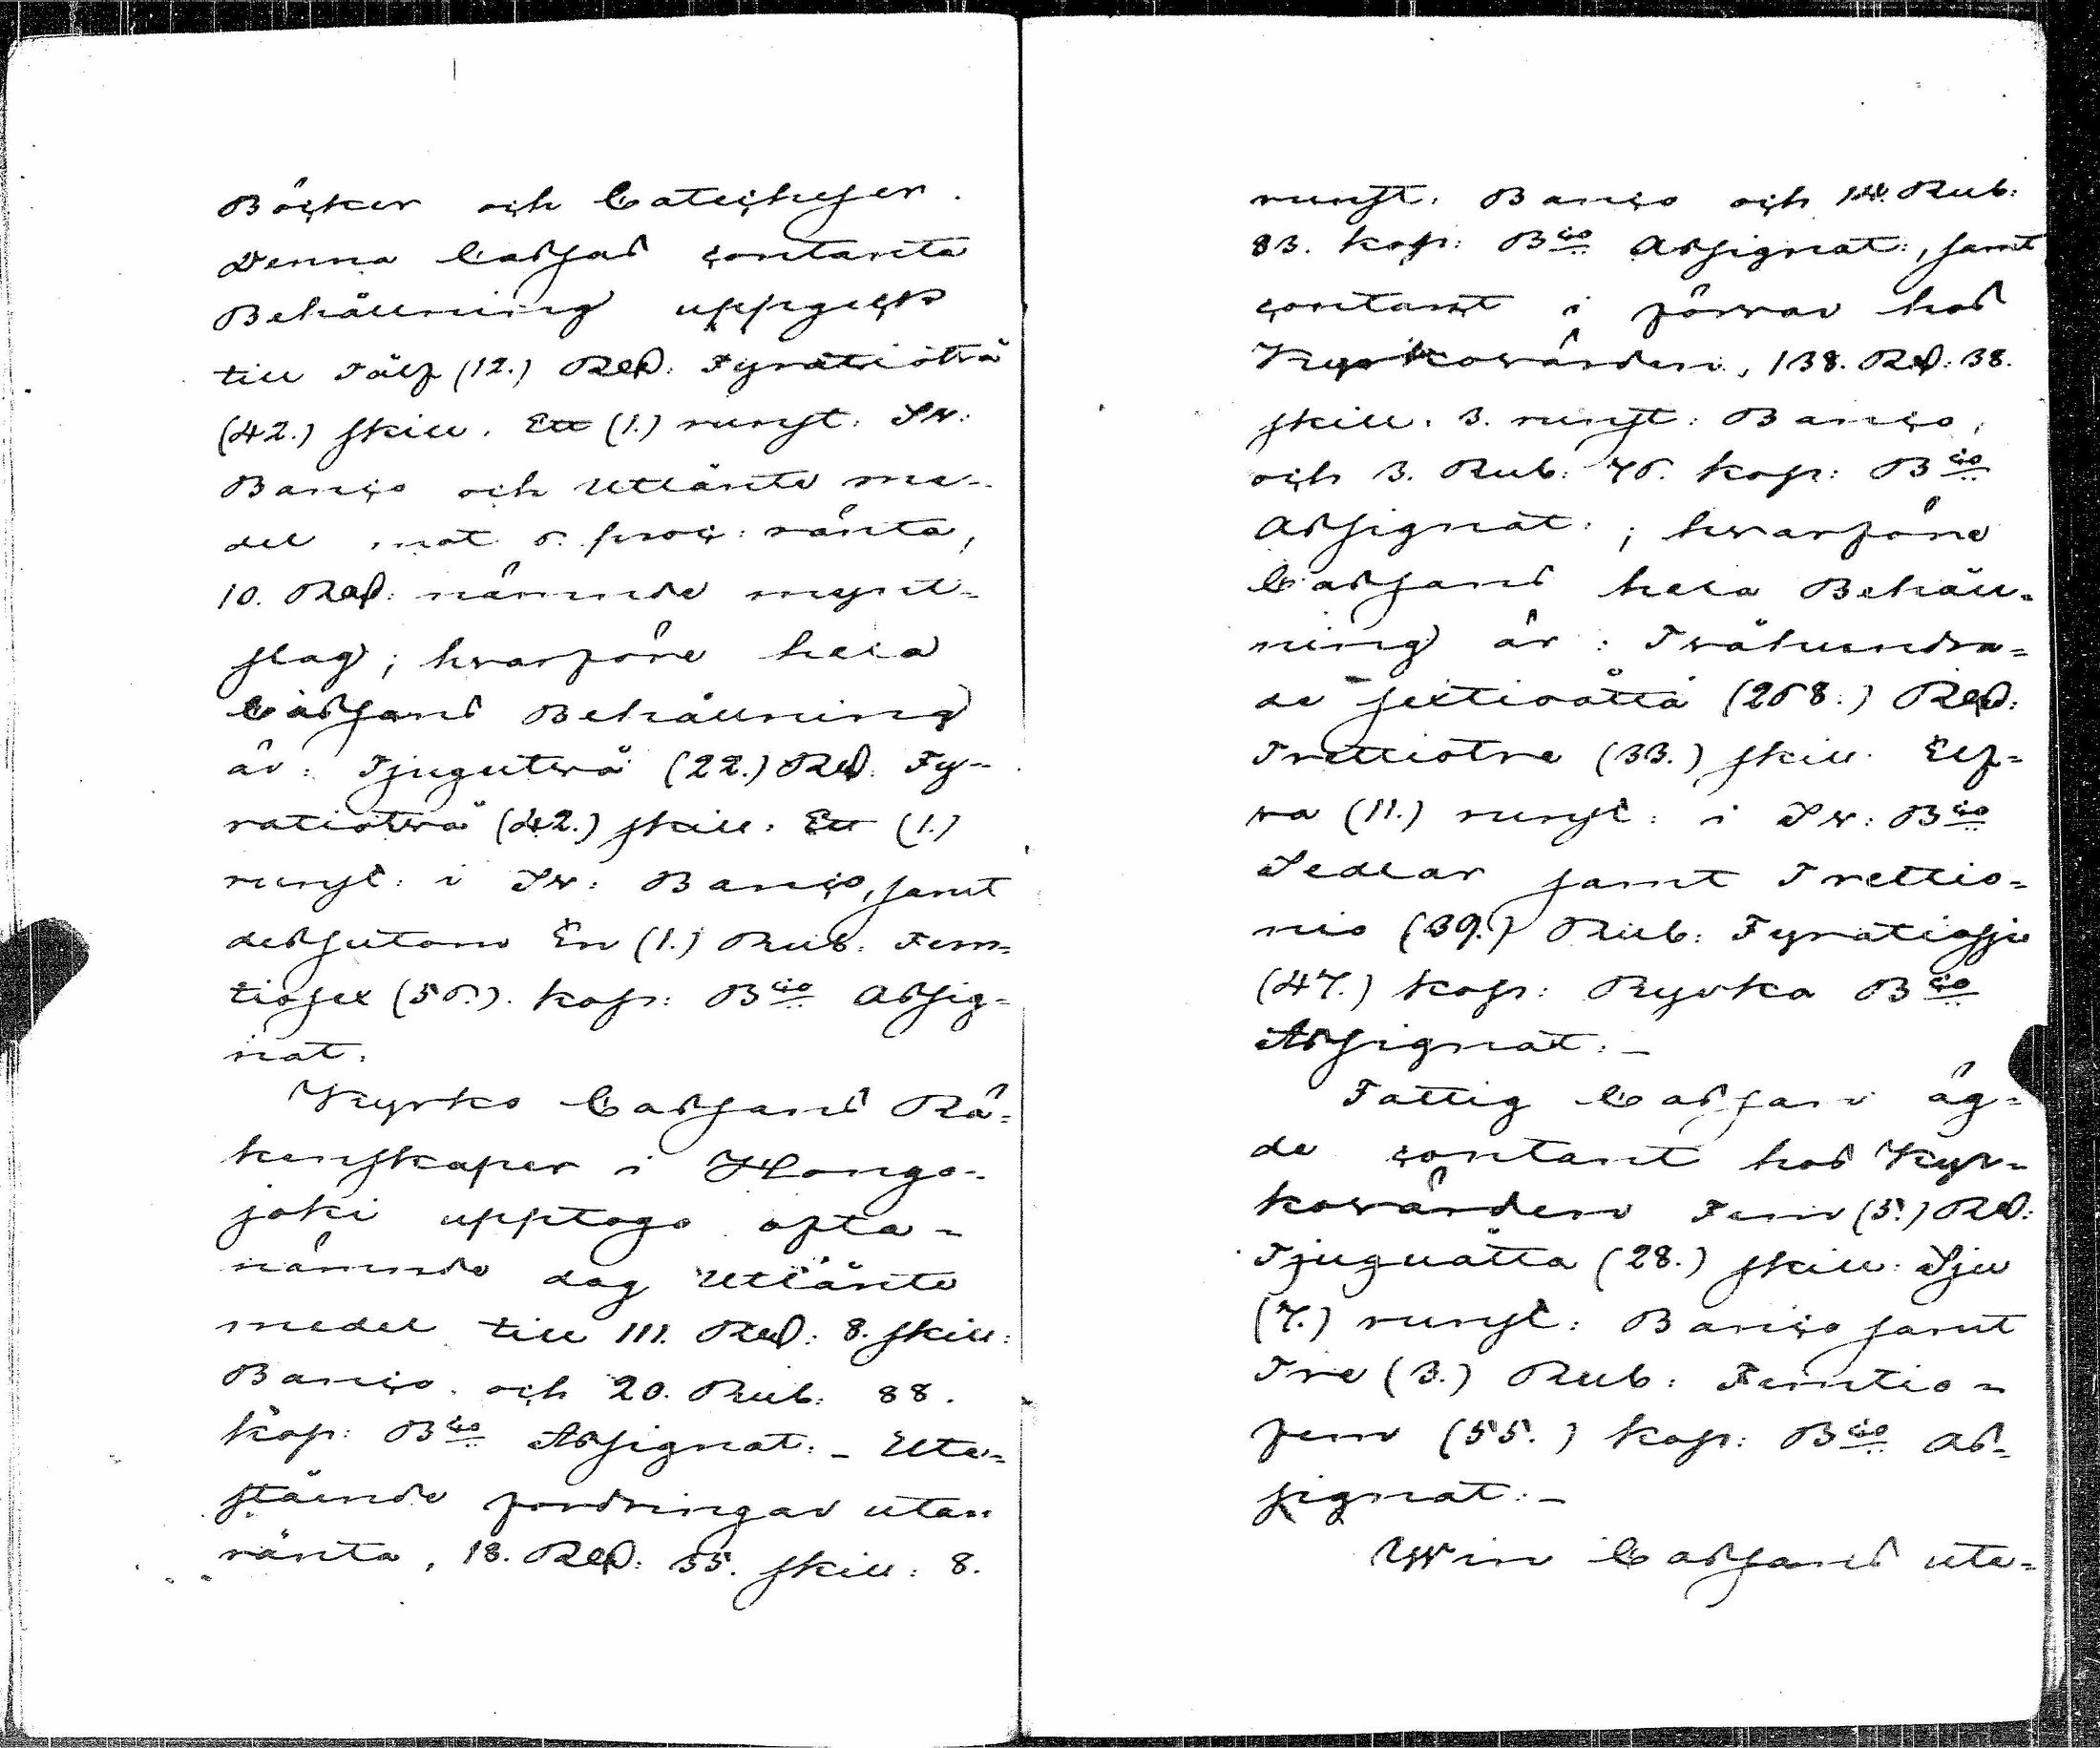 Böcker och Catecheser.
Denna Cassas contanta
Behållning uppgick
till Tålf (12.) Rd: Fyratiotvå
(42.) skill. Ett (1.) runst. Sv:
Banco och Utlånte me-
del mot 6. proc: ränta,
10. Rd: nämnde mynt-
slag; hvarföre hela
Cassans Behållning
är: Tjugutvå (22.) Rd. Fy-
ratiotvå (42.) skill. Ett (1.)
runst: i Sv: Banco, samt
desutom En (1.) Rub: Fem-
tiosex (56.). kop: Bco Assig-
nat.
Kyrko Cassans Rä-
kenskaper i Hongo-
joki upptogo ofta-
nämnde dag Utlånte
medel till 111. Rd: 8. skill:
Banco. och 20. Rub: 88.
kop: Bco Assignat: - Ute-
stående fordringar utan
ränta, 18. Rd: 35. skill: 8.
runst. Banco och 14. Rub:
83. kop: Bco Assignat:, samt
contant i förvar hos
Kyrkovärden, 138. Rd: 38.
skill. 3. runst: Banco,
och 3. Rub: 76. kop: Bco
Assignat: ; hvarföre
Cassans hela Behåll-
ning är: Tvåhundra-
de sextioåtta (268.) Rd:
Trettiotre (33.) skill. Elf-
va (11.) runst: i Sv: Bco
Sedlar samt Trettio-
nio (39.) Rub: Fyratiosju
(47.) kop: Ryska Bco
Assignat: -
Fattig Cassan äg-
de contant hos Kyr-
kovärden Fem (5.) Rd:
Tjuguåtta (28.) skill. Sju
(7.) runst: Banco samt
Tre (3.) Rub: Femtio-
fem (55.) kop: Bco As-
signat: -
Win Cassans ute-